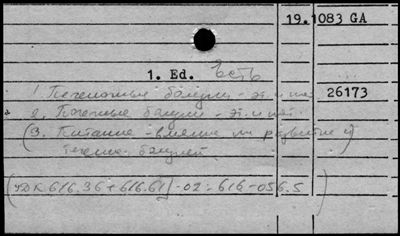 19.1083 GA
1. Ed. Есть
1. Печеночные болезни - эт. и пат.
26173
2. Почечные болезни - эт. и пат.
(3. Питание - влияние на развитие и
течение болезней
(УДК 616.36+616.61)-02:616-056.5)